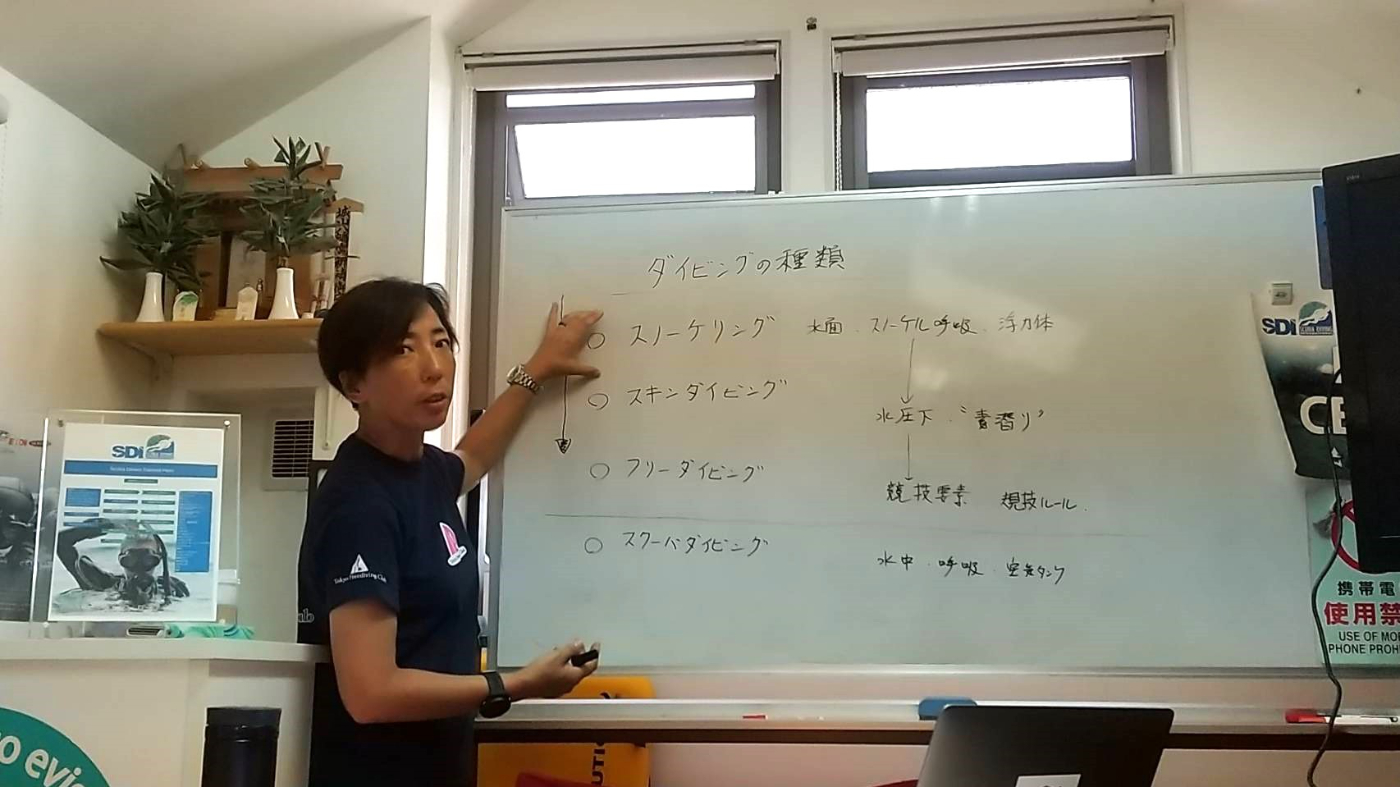 ダイビングの種類
スノーケリング 水面 . スノーケル呼吸 . 浮力体
スキンダイビング 水圧下 . “素潜り”
フリーダイビング 競技要素 競技ルール .
スクーバダイビング 水中 . 呼吸 . 空気タンク
SDI
SDI
携帯電
使用禁
USE OF MO
PHONE PROH
Tokyo Freediving Club